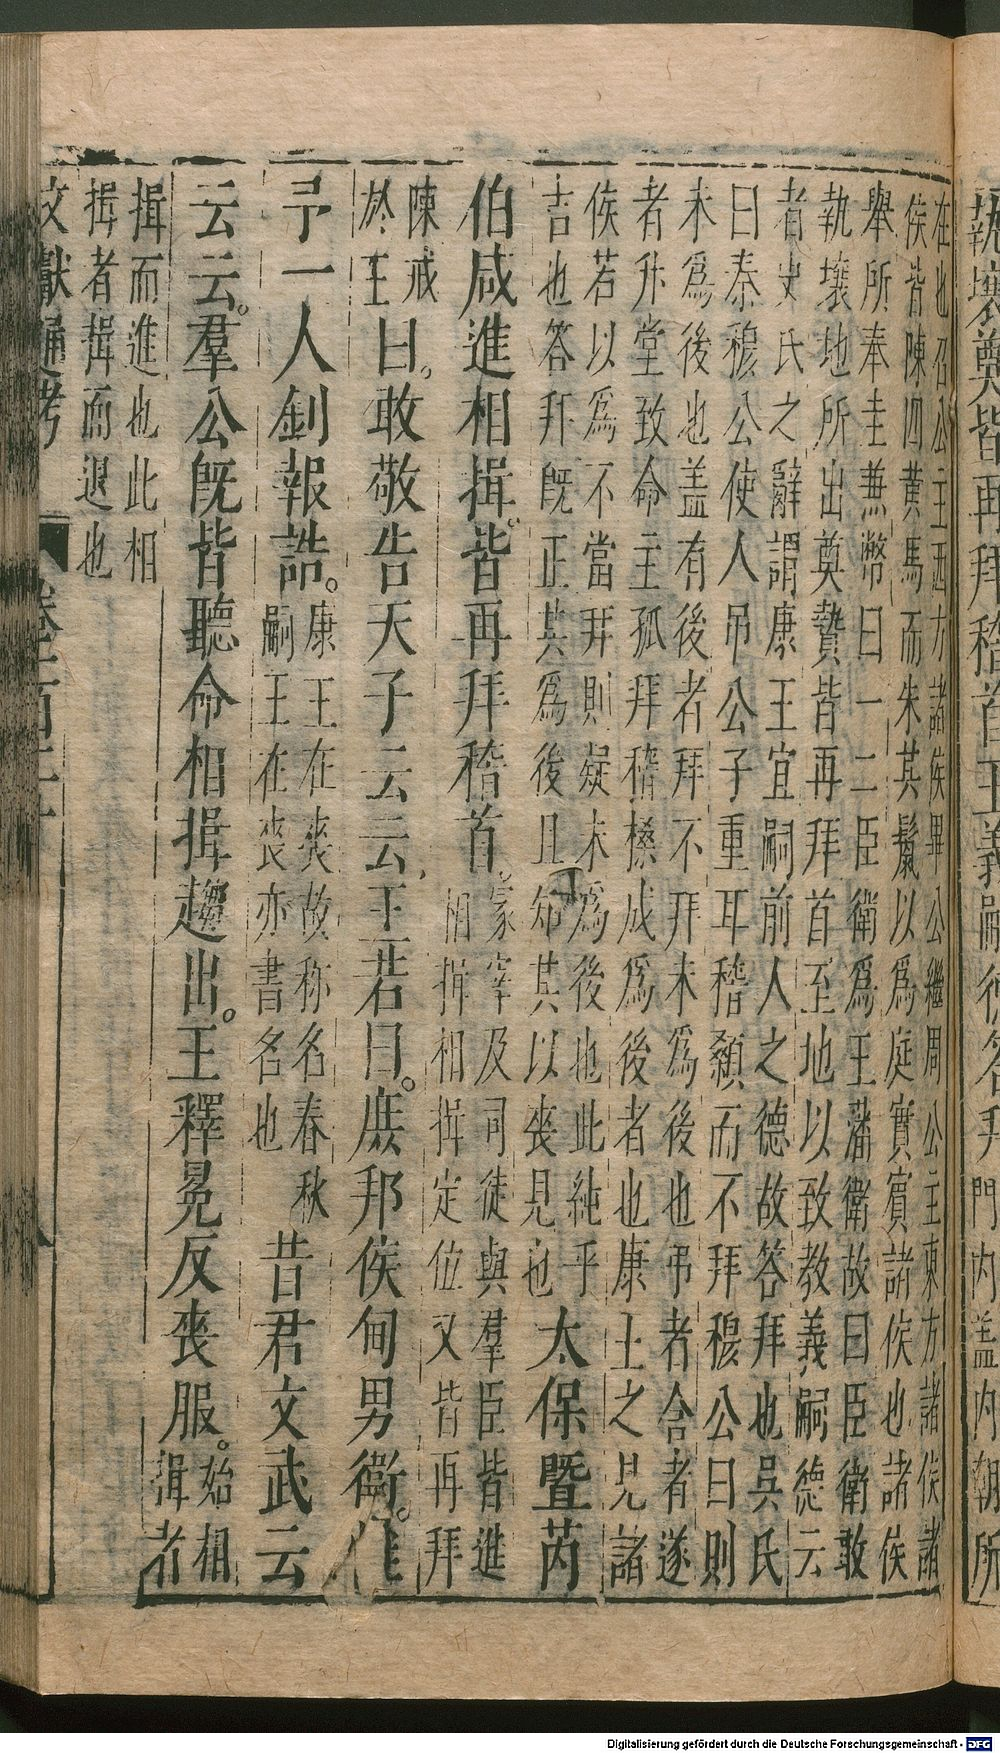 執壤奠皆再拜稽首王義嗣德答拜門内盖内朝所
在也召公主西方諸侯畢公繼周公主東方諸侯諸
侯皆陳四黄馬而朱其鬛以爲庭實賓諸侯也諸侯
舉所奉圭兼幣曰一二臣衛爲王藩衛故曰臣衛敢
執壤地所出奠贄皆再拜首至地以致教義嗣德云
者史氏之辭謂康王宜嗣前人之德故答拜也吳氏
曰秦穆公使人吊公子重耳稽顙而不拜穆公曰則
未爲後也盖有後者拜不拜未爲後也弔者含者遂
者升堂致命主孤拜稽槡成爲後者也康王之見諸
侯若以爲不當拜則疑未爲後也此純乎
吉也答拜旣正其爲後且知其以丧見也
太保暨芮
伯咸進相揖。皆再拜稽首。
冢宰及司徒與羣臣皆進
相揖相揖定位又皆再拜
陳戒
於王
曰。敢敬告天子云云王若曰。庶邦侯甸男衛。惟
予一人釗報誥。
康王在丧故称名春秋
嗣王在丧亦書名也
昔君文武云
云云。羣公旣皆聽命相揖趨出。王釋冕反丧服。
始相
揖者
揖而進也此相
揖者揖而退也
文獻通考
Digitalisierung gefördert durch die Deutsche Forschungsgemeinschaft - DFG